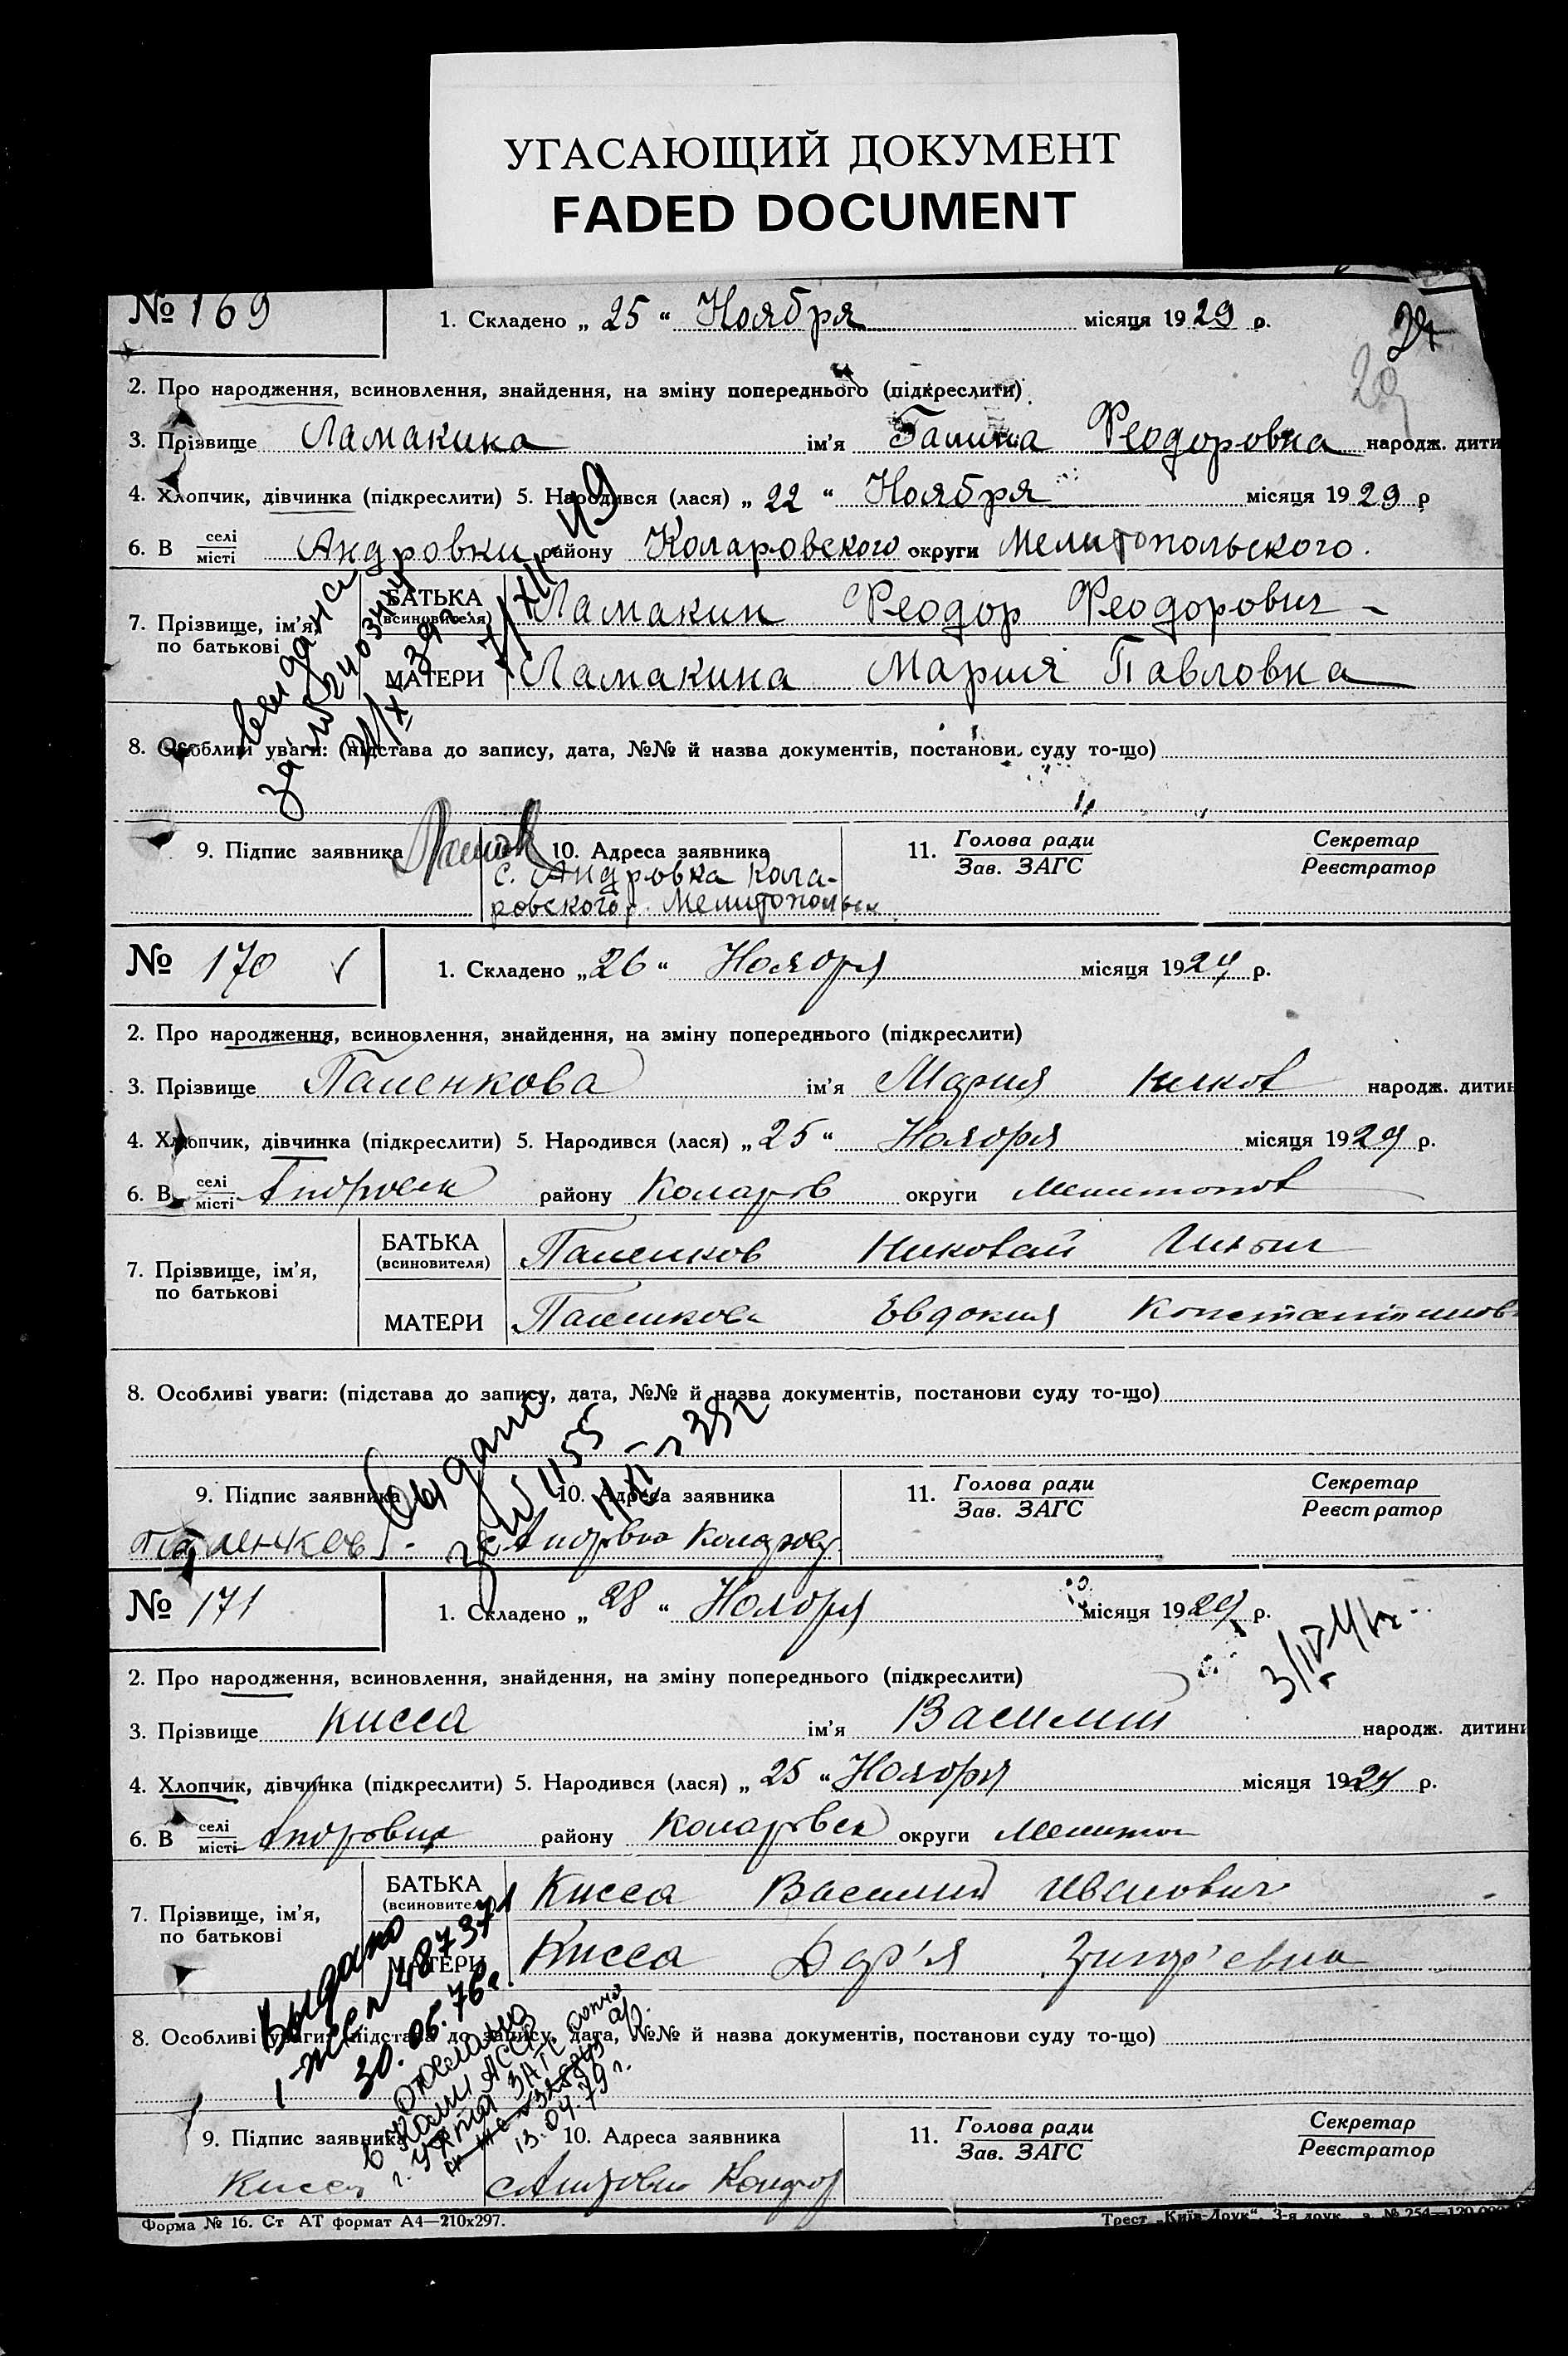 УГАСАЮЩИЙ ДОКУМЕНТ
FADED DOCUMENT
№ 169
1. Складено „ 25 “ Ноября місяця 1929 р.
2. Про народження, всиновлення, знайдення, на зміну попереднього (підкреслити)
3. Прізвище Ламакина ім’я Галина Феодоровна народж. дити
4. Хлопчик, дівчинка (підкреслити) 5. Народився (лася) „ 22 “ Ноября місяця 1929 р
6. В селі місті Андровки району Коларовского округи Мелитопольского.
7. Прізвище, ім’я, по батькові
БАТЬКА (всиновителя) Ламакин Феодор Феодорович
МАТЕРИ Ламакина Мария Павловна
8. Особливі уваги: (підстава до запису, дата, №№ й назва документів, постанови суду то-що)
9. Підпис заявника
10. Адреса заявника
с. Андровка Кола-
ровского р. Мелитопольск.
11. Голова ради Зав. ЗАГС
Секретар Реєстратор
№ 170
1. Складено „ 26 “ Ноября місяця 1929 р.
2. Про народження, всиновлення, знайдення, на зміну попереднього (підкреслити)
3. Прізвище Паленкова ім’я Мария народж. дитин
4. Хлопчик, дівчинка (підкреслити) 5. Народився (лася) „ 25 “ Ноября місяця 1929 р.
6. В селі місті району Коларов округи Мелитопол
7. Прізвище, ім’я, по батькові
БАТЬКА (всиновителя) Паленков Николай
МАТЕРИ Паленкова Евдокия Константинов
8. Особливі уваги: (підстава до запису, дата, №№ й назва документів, постанови суду то-що)
Выдано
за № 1155
9. Підпис заявника
Паленков
10. Адреса заявника
11. Голова ради Зав. ЗАГС
Секретар Реєстратор
№ 171
1. Складено „ 28 “ Ноября місяця 1929 р.
2. Про народження, всиновлення, знайдення, на зміну попереднього (підкреслити)
3. Прізвище Кисса ім’я Василий народж. дитини
4. Хлопчик, дівчинка (підкреслити) 5. Народився (лася) „ 25 “ Ноября місяця 1929 р.
6. В селі місті Андровка району Коларовск округи Мелитоп
7. Прізвище, ім’я, по батькові
БАТЬКА (всиновителя) Кисса Василий Иванович
МАТЕРИ Кисса Дар’я
8. Особливі уваги: (підстава до запису, дата, №№ й назва документів, постанови суду то-що)
Выдано
30.06.76г.
13.04.79 г.
9. Підпис заявника
Кисса
10. Адреса заявника
11. Голова ради Зав. ЗАГС
Секретар Реєстратор
Форма № 16. Ст АТ формат А4—210х297.
Трест „Київ-Друк“, 3-я друк.